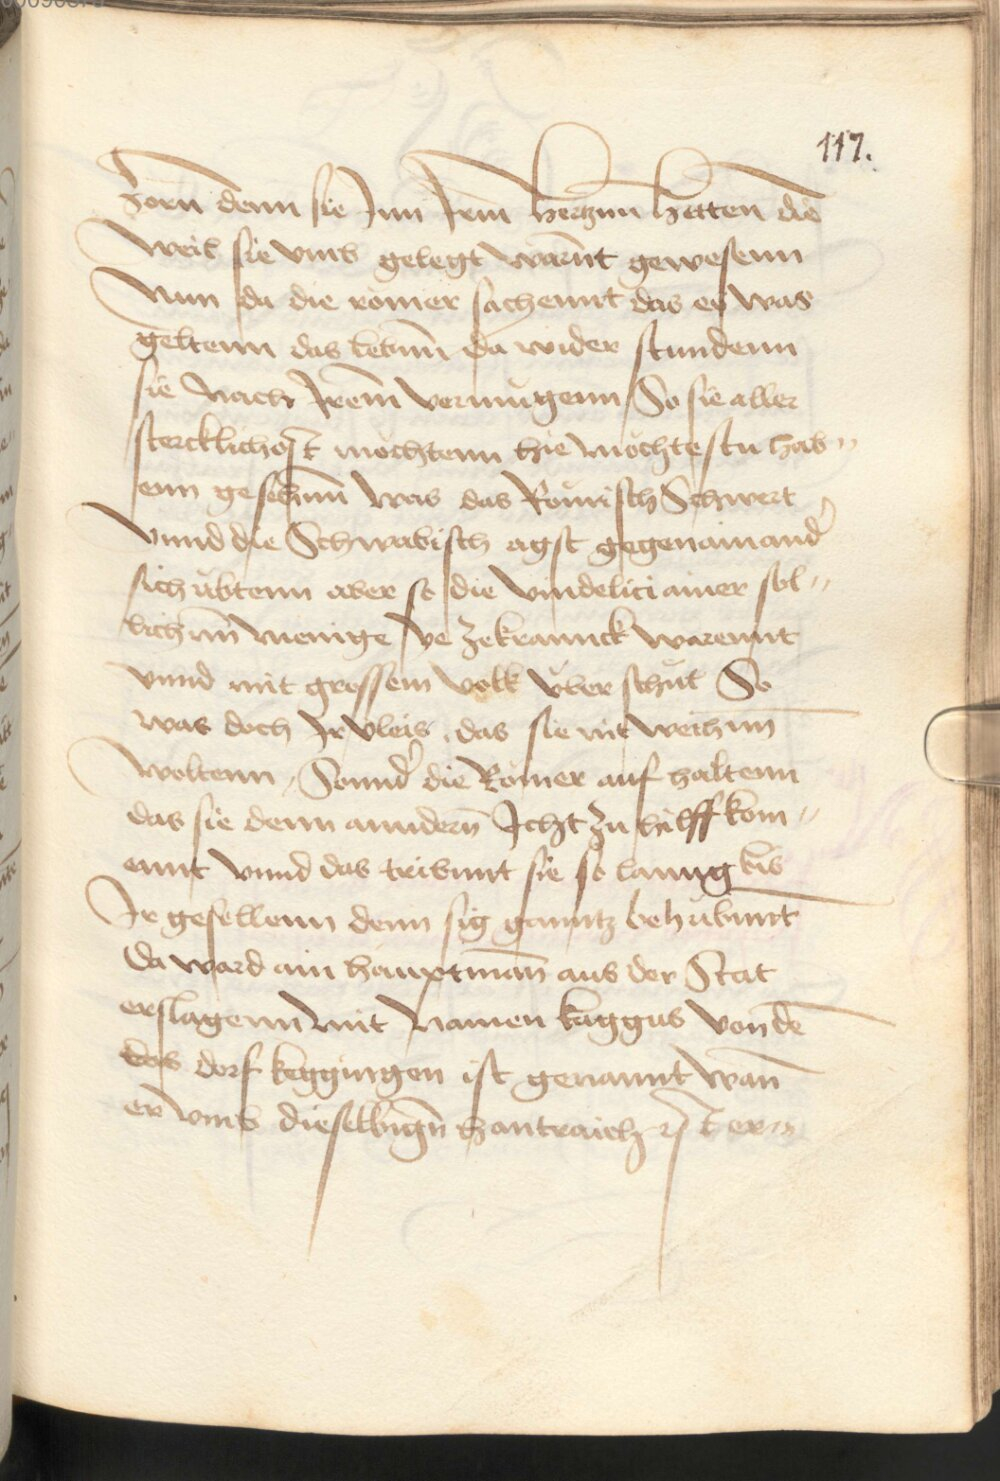 117.
Zorn denn sie Inn Irm hertznn hetten die
weil sie vmb gelegt warnt gewesenn
Nun da die römer sachennt das es was
geltenn das lebnn da wider stundenn
sie Nach Irem vermugenn So sie aller
stercklichost mochtenn hie möchtestu hab„
enn gesehnn was das Römisch Schwert
vnnd die Schwabisch agst gegenainand
sich übtenn aber so die vindelici ainer sol„
lichnn menige ze krannck warennt
vnnd mit grossem volk über schüt So
was doch Ir vleis das sie nit weichnn
woltenn Sonnd die Römer auf haltenn
das sie denn anndern Icht zu hilff kom„
ennt vnnd das tribnnt sie so lanng bis
Ir gesellenn denn sig ganntz behubnnt
Da ward ain hauptman aus der Stat
erslagenn mit Namen kaggus von de
das dorf keggingen ist genannt wan
er vmb dieselbign hantraich ist er„